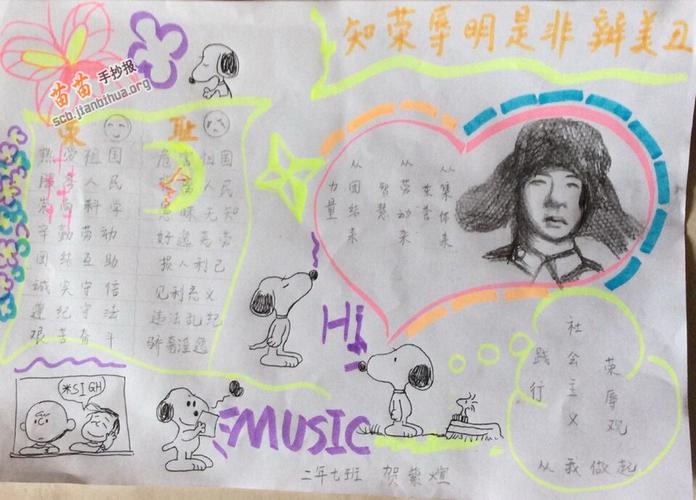 知荣辱明是非辨美丑
苗苗手抄报
scb.jianbihua.org
荣 耻
热爱祖国 危害祖国
服务人民 背离人民
崇尚科学 愚昧无知
辛勤劳动 好逸恶劳
团结互助 损人利己
诚实守信 见利忘义
遵纪守法 违法乱纪
艰苦奋斗 骄奢淫逸
力量
从团结来
智慧
从劳动来
荣誉
从集体来
Hi
*SIGH
MUSIC
践行
社会主义
荣辱观
从我做起
二年七班 贺紫煊